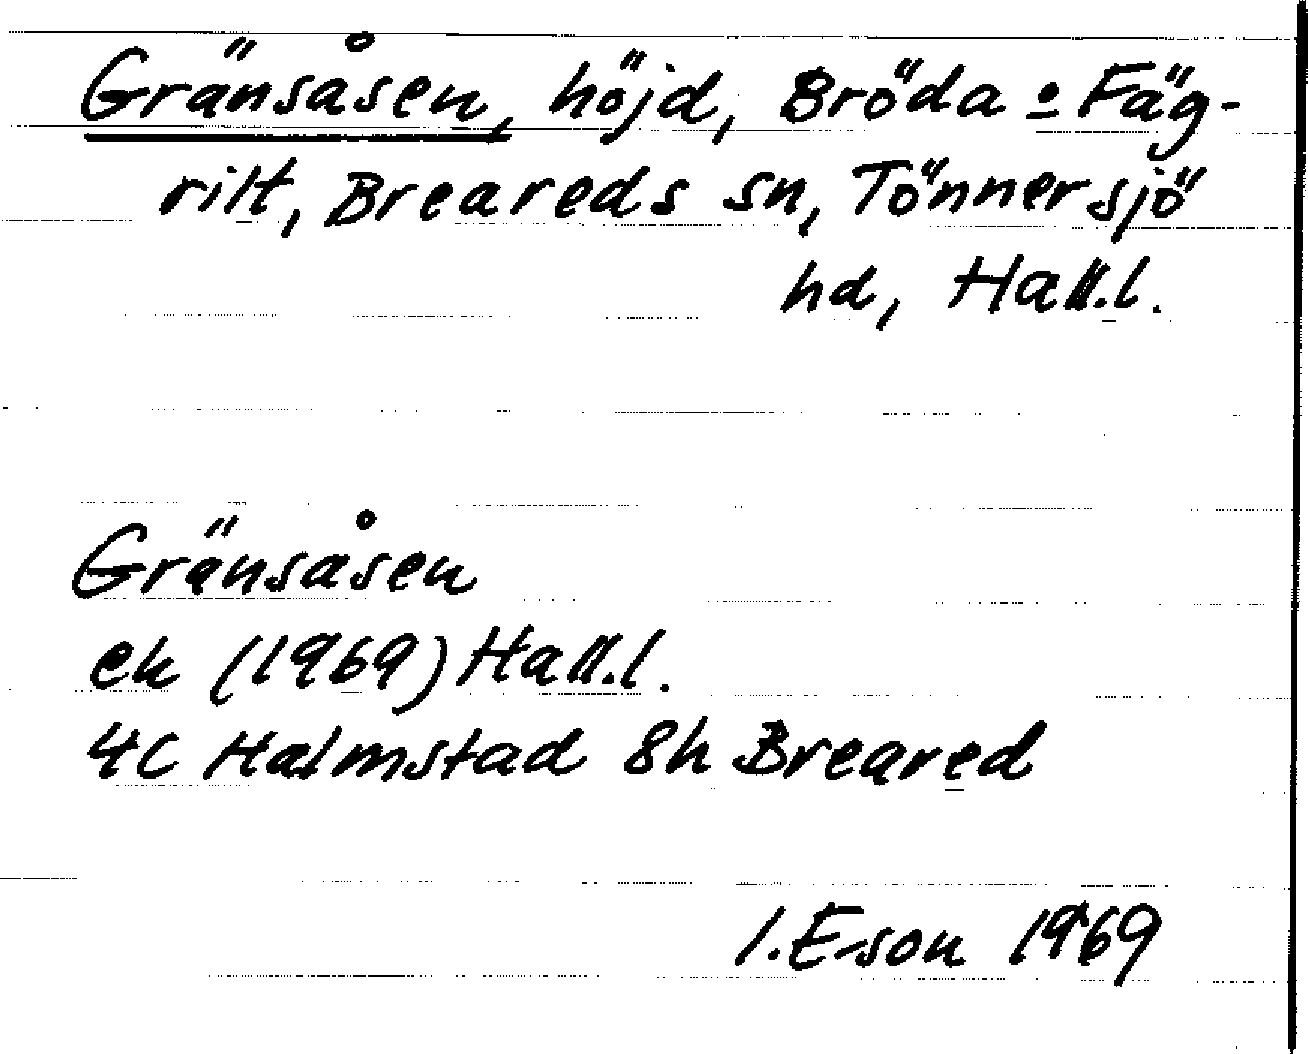 Gränsåsen, höjd, Bröda o Fäg-
rilt, Breareds sn, Tönnersjö
hd, Hall.l.
Gränsåsen
ek (1969) Hall.l.
4C Halmstad 8h Breared
I. E-son 1969